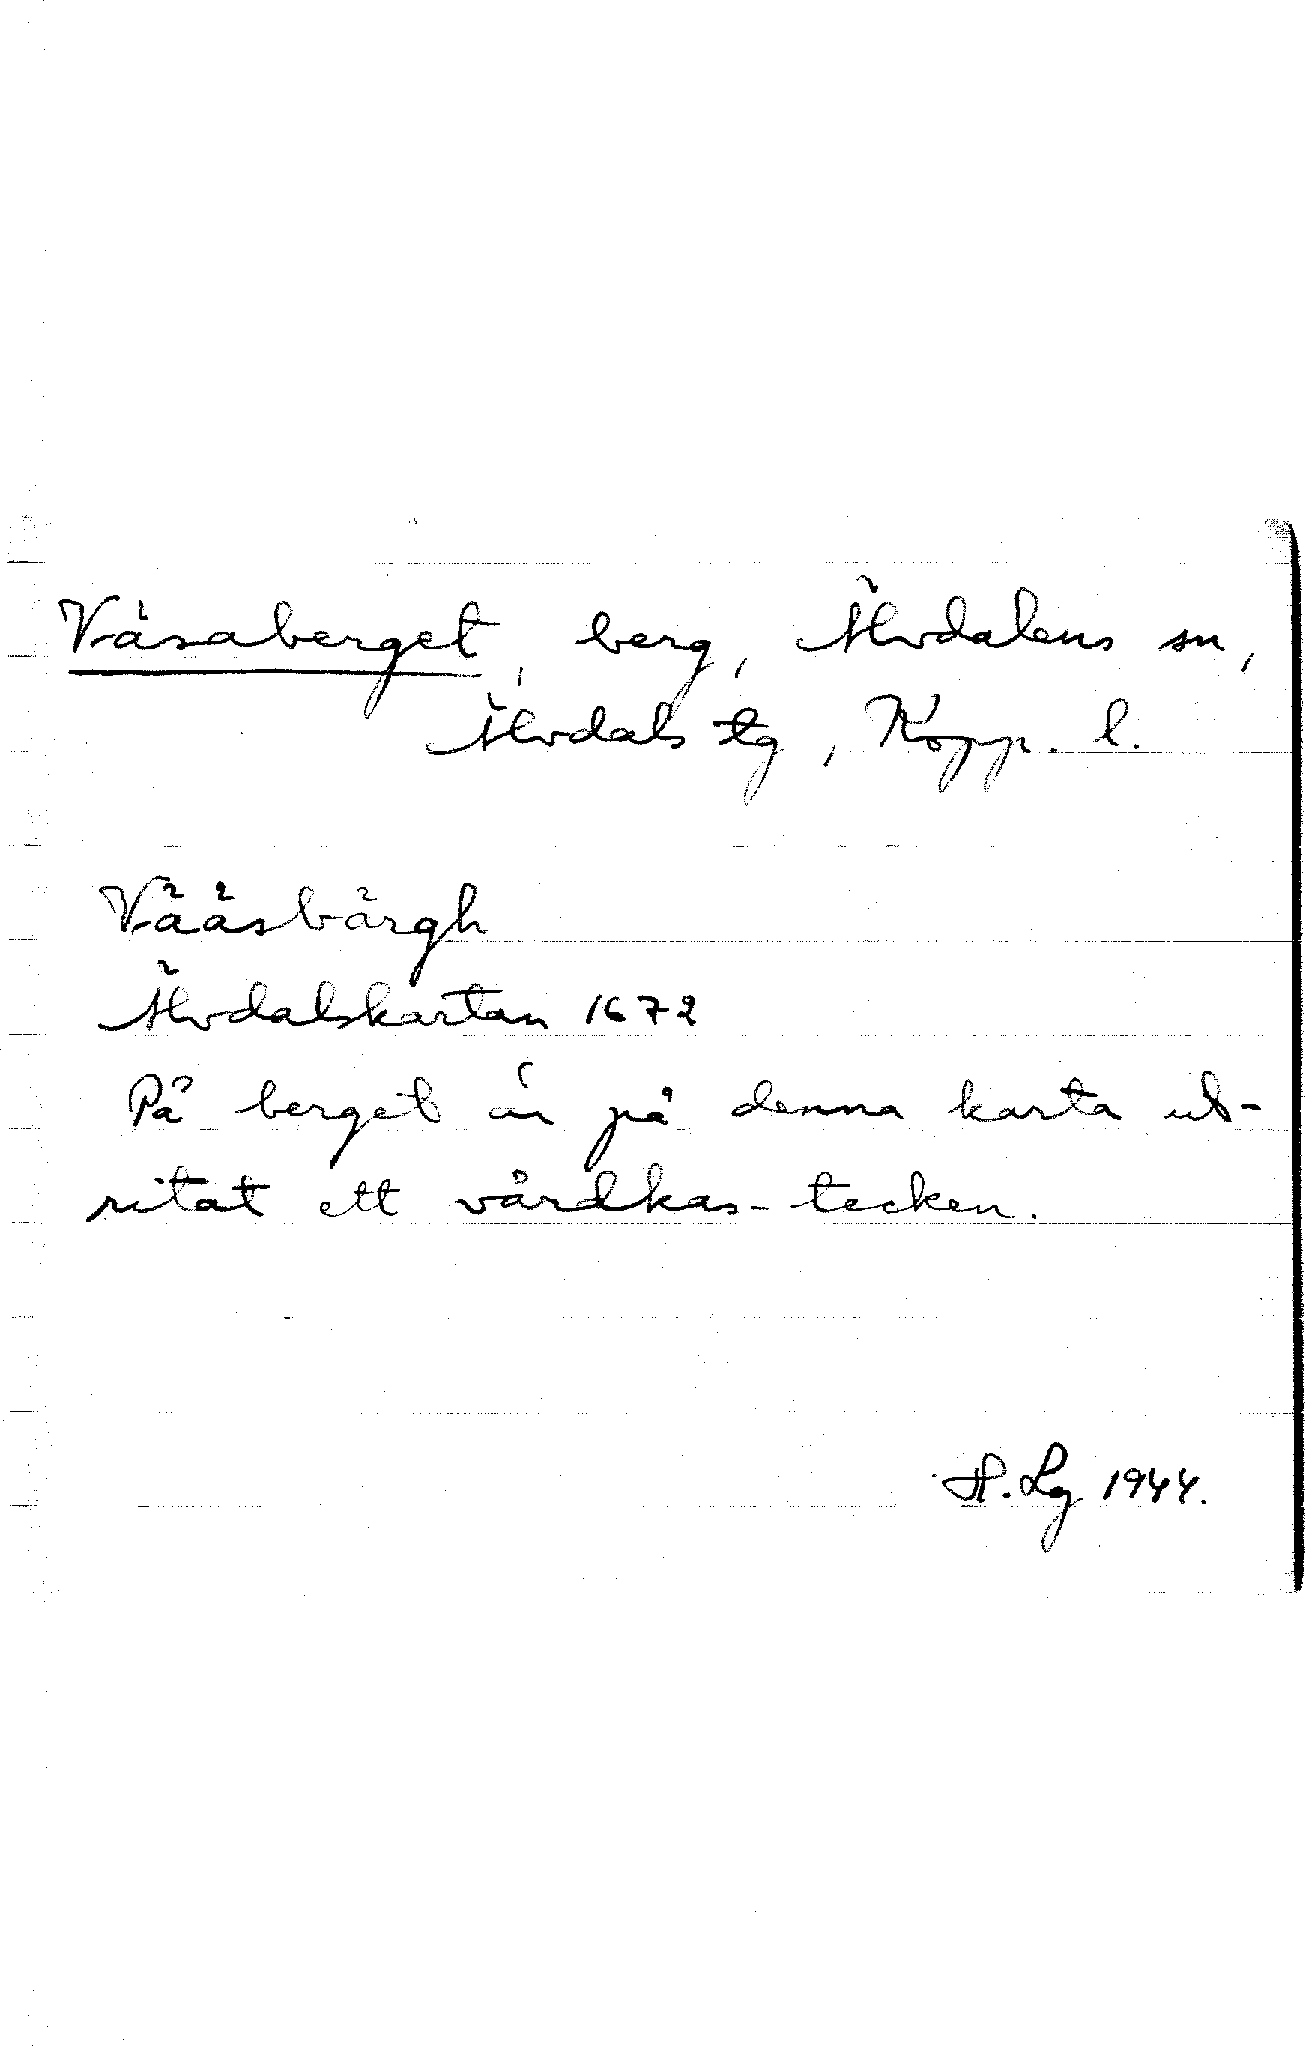 Väsaberget, berg, Älvdalens sn,
Älvdals tg, Kopp. l.
Vääsbärgh
Älvdalskartan 1672
På berget är på denna karta ut-
ritat ett vårdkas-tecken.
H. Lg 1944.